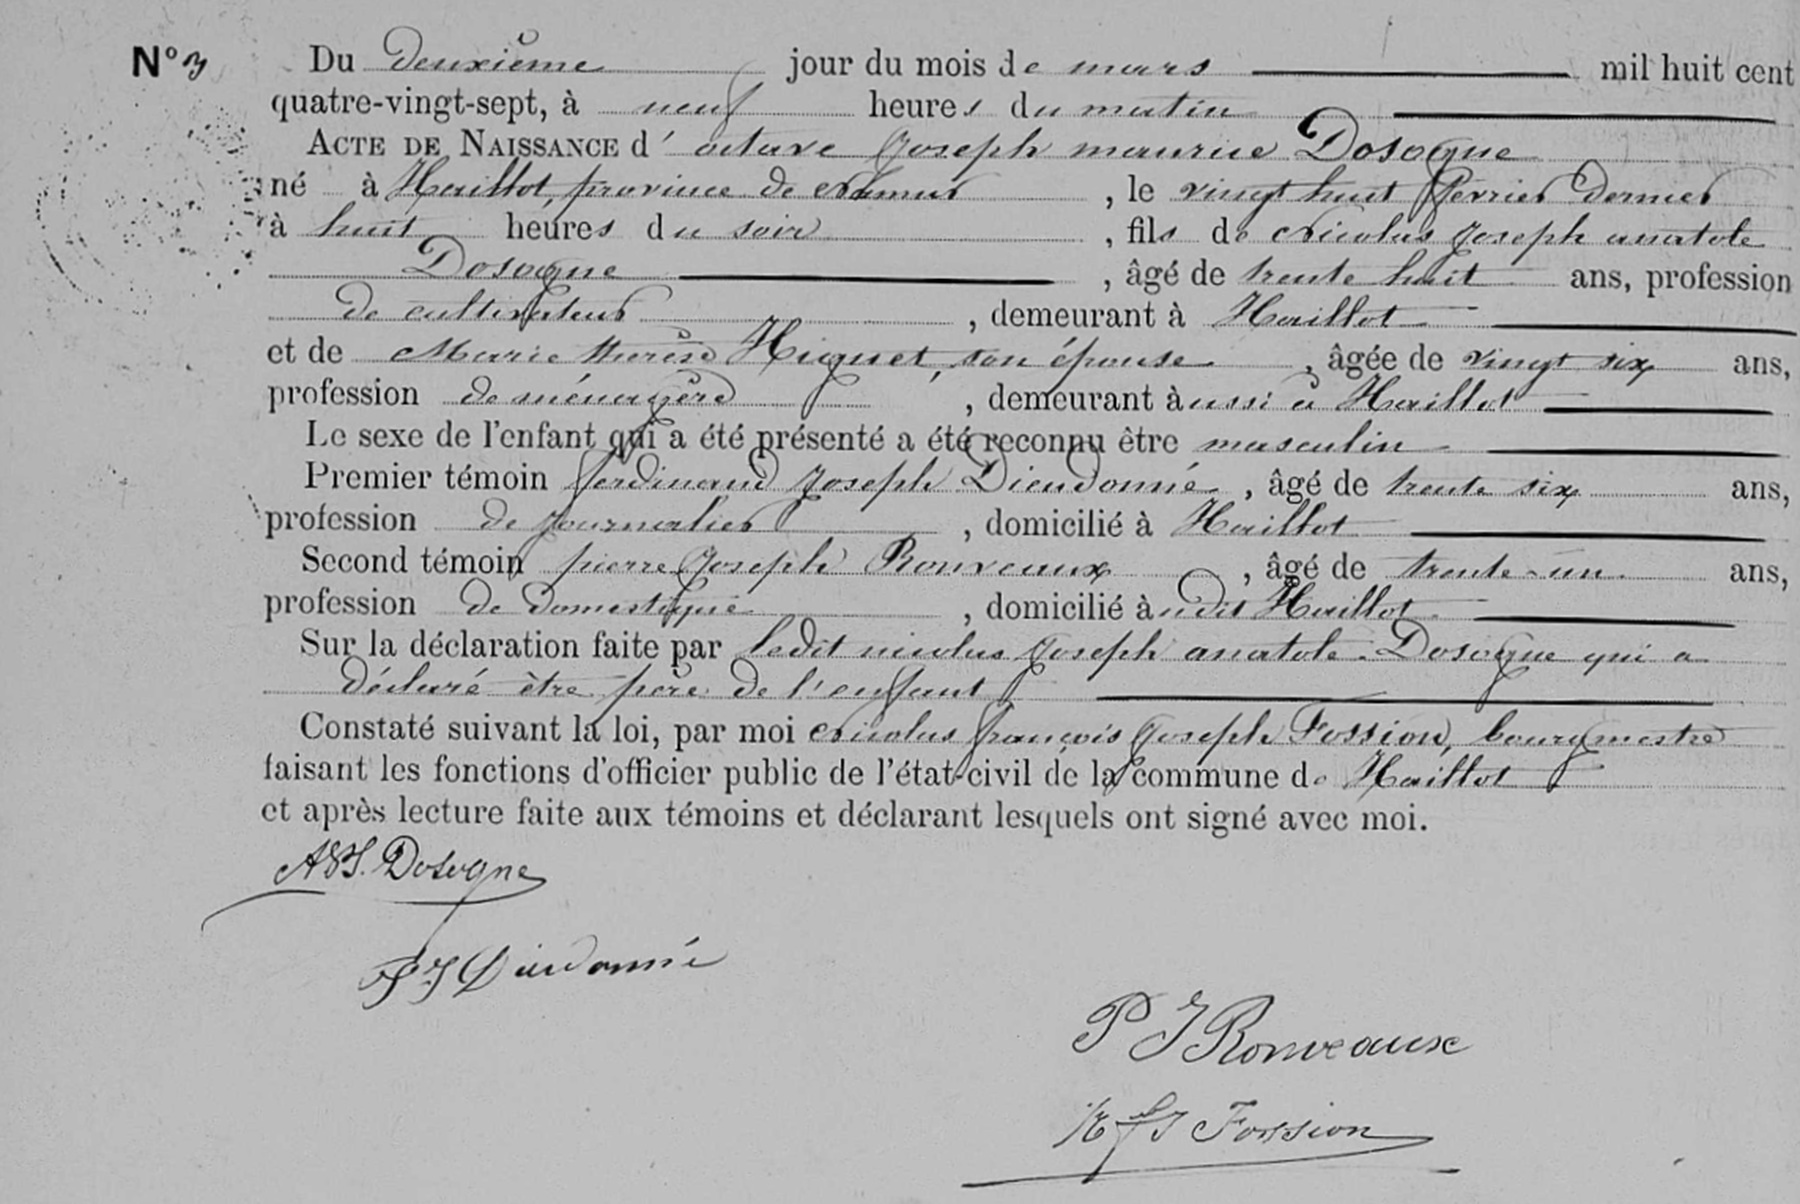 N° 3 Du deuxième jour du mois de mars mil huit cent
quatre-vingt-sept, à neuf heures du matin
ACTE DE NAISSANCE d' octave Joseph maurice Dosogne
né à Haillot, province de Namur, le vingt huit fevrier dernier
à huit heures du soir, fils de Nicolas Joseph anatole
Dosogne, âgé de trente huit ans, profession
de cultivateur, demeurant à Haillot
et de Marie thérèse Huguet, son épouse, âgée de vingt six ans,
profession de ménagère, demeurant aussi à Haillot
Le sexe de l'enfant qui a été présenté a été reconnu être masculin
Premier témoin ferdinand Joseph Dieudonné, âgé de trente six ans,
profession de journalier, domicilié à Haillot
Second témoin pierre Joseph Ronveaux, âgé de trente-un ans,
profession de domestique, domicilié audit Haillot
Sur la déclaration faite par ledit nicolas Joseph anatole Dosogne qui a
déclaré être père de l'enfant
Constaté suivant la loi, par moi Nicolas françois Joseph Fossion, bourgmestre
faisant les fonctions d'officier public de l'état-civil de la commune de Haillot
et après lecture faite aux témoins et déclarant lesquels ont signé avec moi.
Dosogne
F J Dieudonné
P J Ronveaux
N f J Fossion